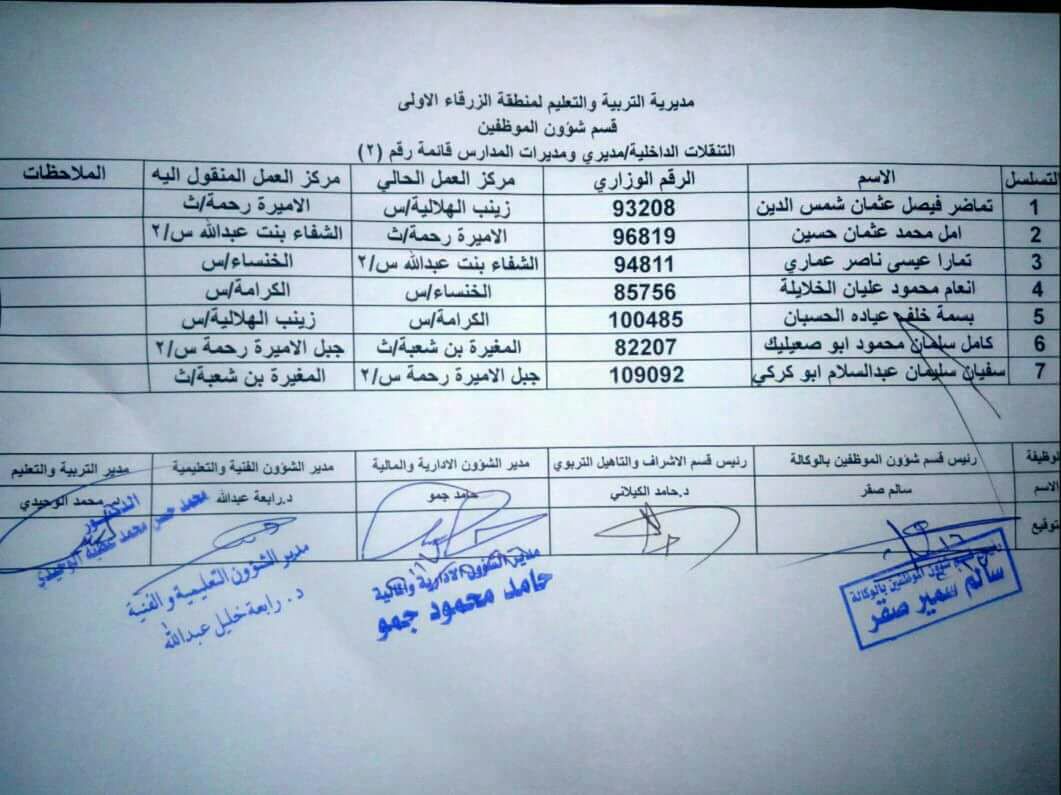 مديرية التربية والتعليم لمنطقة الزرقاء الاولى
قسم شؤون الموظفين
التنقلات الداخلية/مديري ومديرات المدارس قائمة رقم (٢)
التسلسل الاسم الرقم الوزاري مركز العمل الحالي مركز العمل المنقول اليه الملاحظات
1 تماضر فيصل عثمان شمس الدين 93208 زينب الهلالية/س الاميرة رحمة/ث
2 امل محمد عثمان حسين 96819 الاميرة رحمة/ث الشفاء بنت عبدالله س/٢
3 تمارا عيسى ناصر عماري 94811 الشفاء بنت عبدالله س/٢ الخنساء/س
4 انعام محمود عليان الخلايلة 85756 الخنساء/س الكرامة/س
5 بسمة خلف عياده الحسبان 100485 الكرامة/س زينب الهلالية/س
6 كامل سلمان محمود ابو صعيليك 82207 المغيرة بن شعبة/ث جبل الاميرة رحمة س/٢
7 سفيان سليمان عبدالسلام ابو كركي 109092 جبل الاميرة رحمة س/٢ المغيرة بن شعبة/ث
لوظيفة رئيس قسم شؤون الموظفين بالوكالة رئيس قسم الاشراف والتاهيل التربوي مدير الشؤون الادارية والمالية مدير الشؤون الفنية والتعليمية مدير التربية والتعليم
الاسم سالم صقر د.حامد الكيلاني حامد جمو د.رابعة عبدالله محمد الوحيدي
توقيع
الدكتور
مدير الشؤون التعليمية والفنية
د. رابعة خليل عبدالله
مدير الشؤون الادارية والمالية
حامد محمود جمو
شؤون الموظفين بالوكالة
سالم سمير صقر